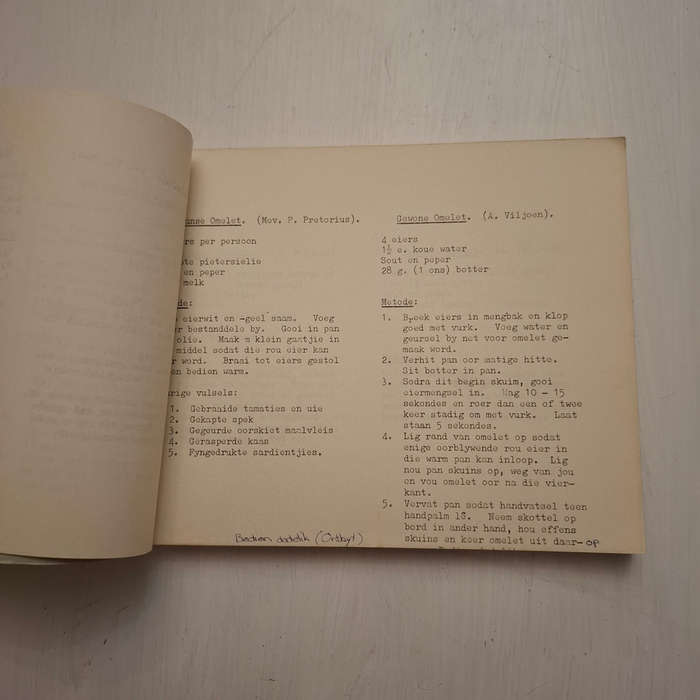 anse Omelet. (Mev. P. Pretorius).
rs per persoon
te pietersielie
en peper
melk
de:
eierwit en -geel saam. Voeg
r bestanddele by. Gooi in pan
olie. Maak 'n klein gaatjie in
middel sodat die rou eier kan
r word. Braai tot eiers gestol
en bedien warm.
rige vulsels:
1. Gebraaide tamaties en uie
2. Gekapte spek
3. Gegeurde oorskiet maalvleis
4. Gerasperde kaas
5. Fyngedrukte sardientjies.
Bedien dadelik (Ontbyt)
Gewone Omelet. (A. Viljoen).
4 eiers
1½ e. koue water
Sout en peper
28 g. (1 ons) botter
Metode:
1. Breek eiers in mengbak en klop
goed met vurk. Voeg water en
geursel by net voor omelet ge-
maak word.
2. Verhit pan oor matige hitte.
Sit botter in pan.
3. Sodra dit begin skuim, gooi
eiermengsel in. Wag 10 - 15
sekondes en roer dan een of twee
keer stadig om met vurk. Laat
staan 5 sekondes.
4. Lig rand van omelet op sodat
enige oorblywende rou eier in
die warm pan kan inloop. Lig
nou pan skuins op, weg van jou
en vou omelet oor na die vier-
kant.
5. Vervat pan sodat handvatsel teen
handpalm is. Neem skottel op
bord in ander hand, hou effens
skuins en keer omelet uit daar-op